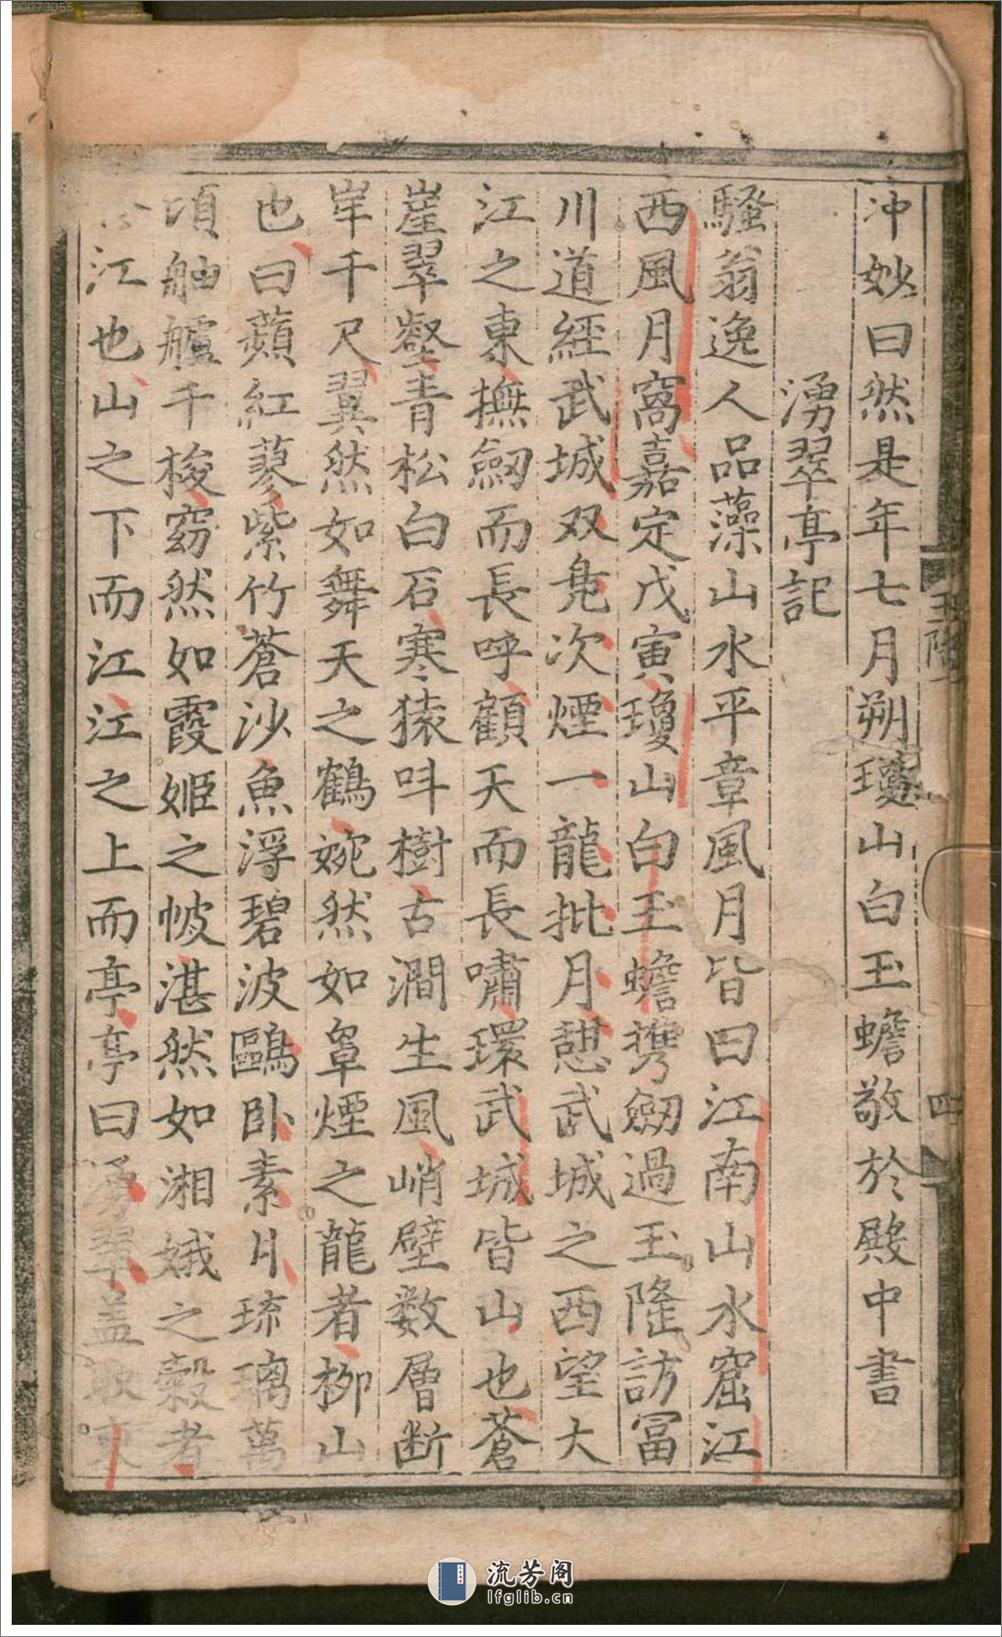 冲妙曰然是年七月朔瓊山白玉蟾敬於殿中書
湧翠亭記
騷翁逸人品藻山水平章風月皆曰江南山水窟江
西風月窩嘉定戊寅瓊山白玉蟾携劔過玉隆訪冨
川道經武城双凫次煙一龍批月憩武城之西望大
江之東撫劔而長呼顧天而長嘯環武城皆山也蒼
崖翠壑青松白石寒猿呌樹古澗生風峭壁数層断
岸千尺翼然如舞天之鶴婉然如罩煙之龍者栁山
也曰蘋紅蓼紫竹蒼沙魚浮碧波鷗卧素月琉璃萬
頃舳艫千梭窈然如霞姬之帔湛然如湘娥之縠者
江也山之下而江江之上而亭亭曰湧翠盖取東
玉隆
四
流芳阁
lfglib.cn
00073055